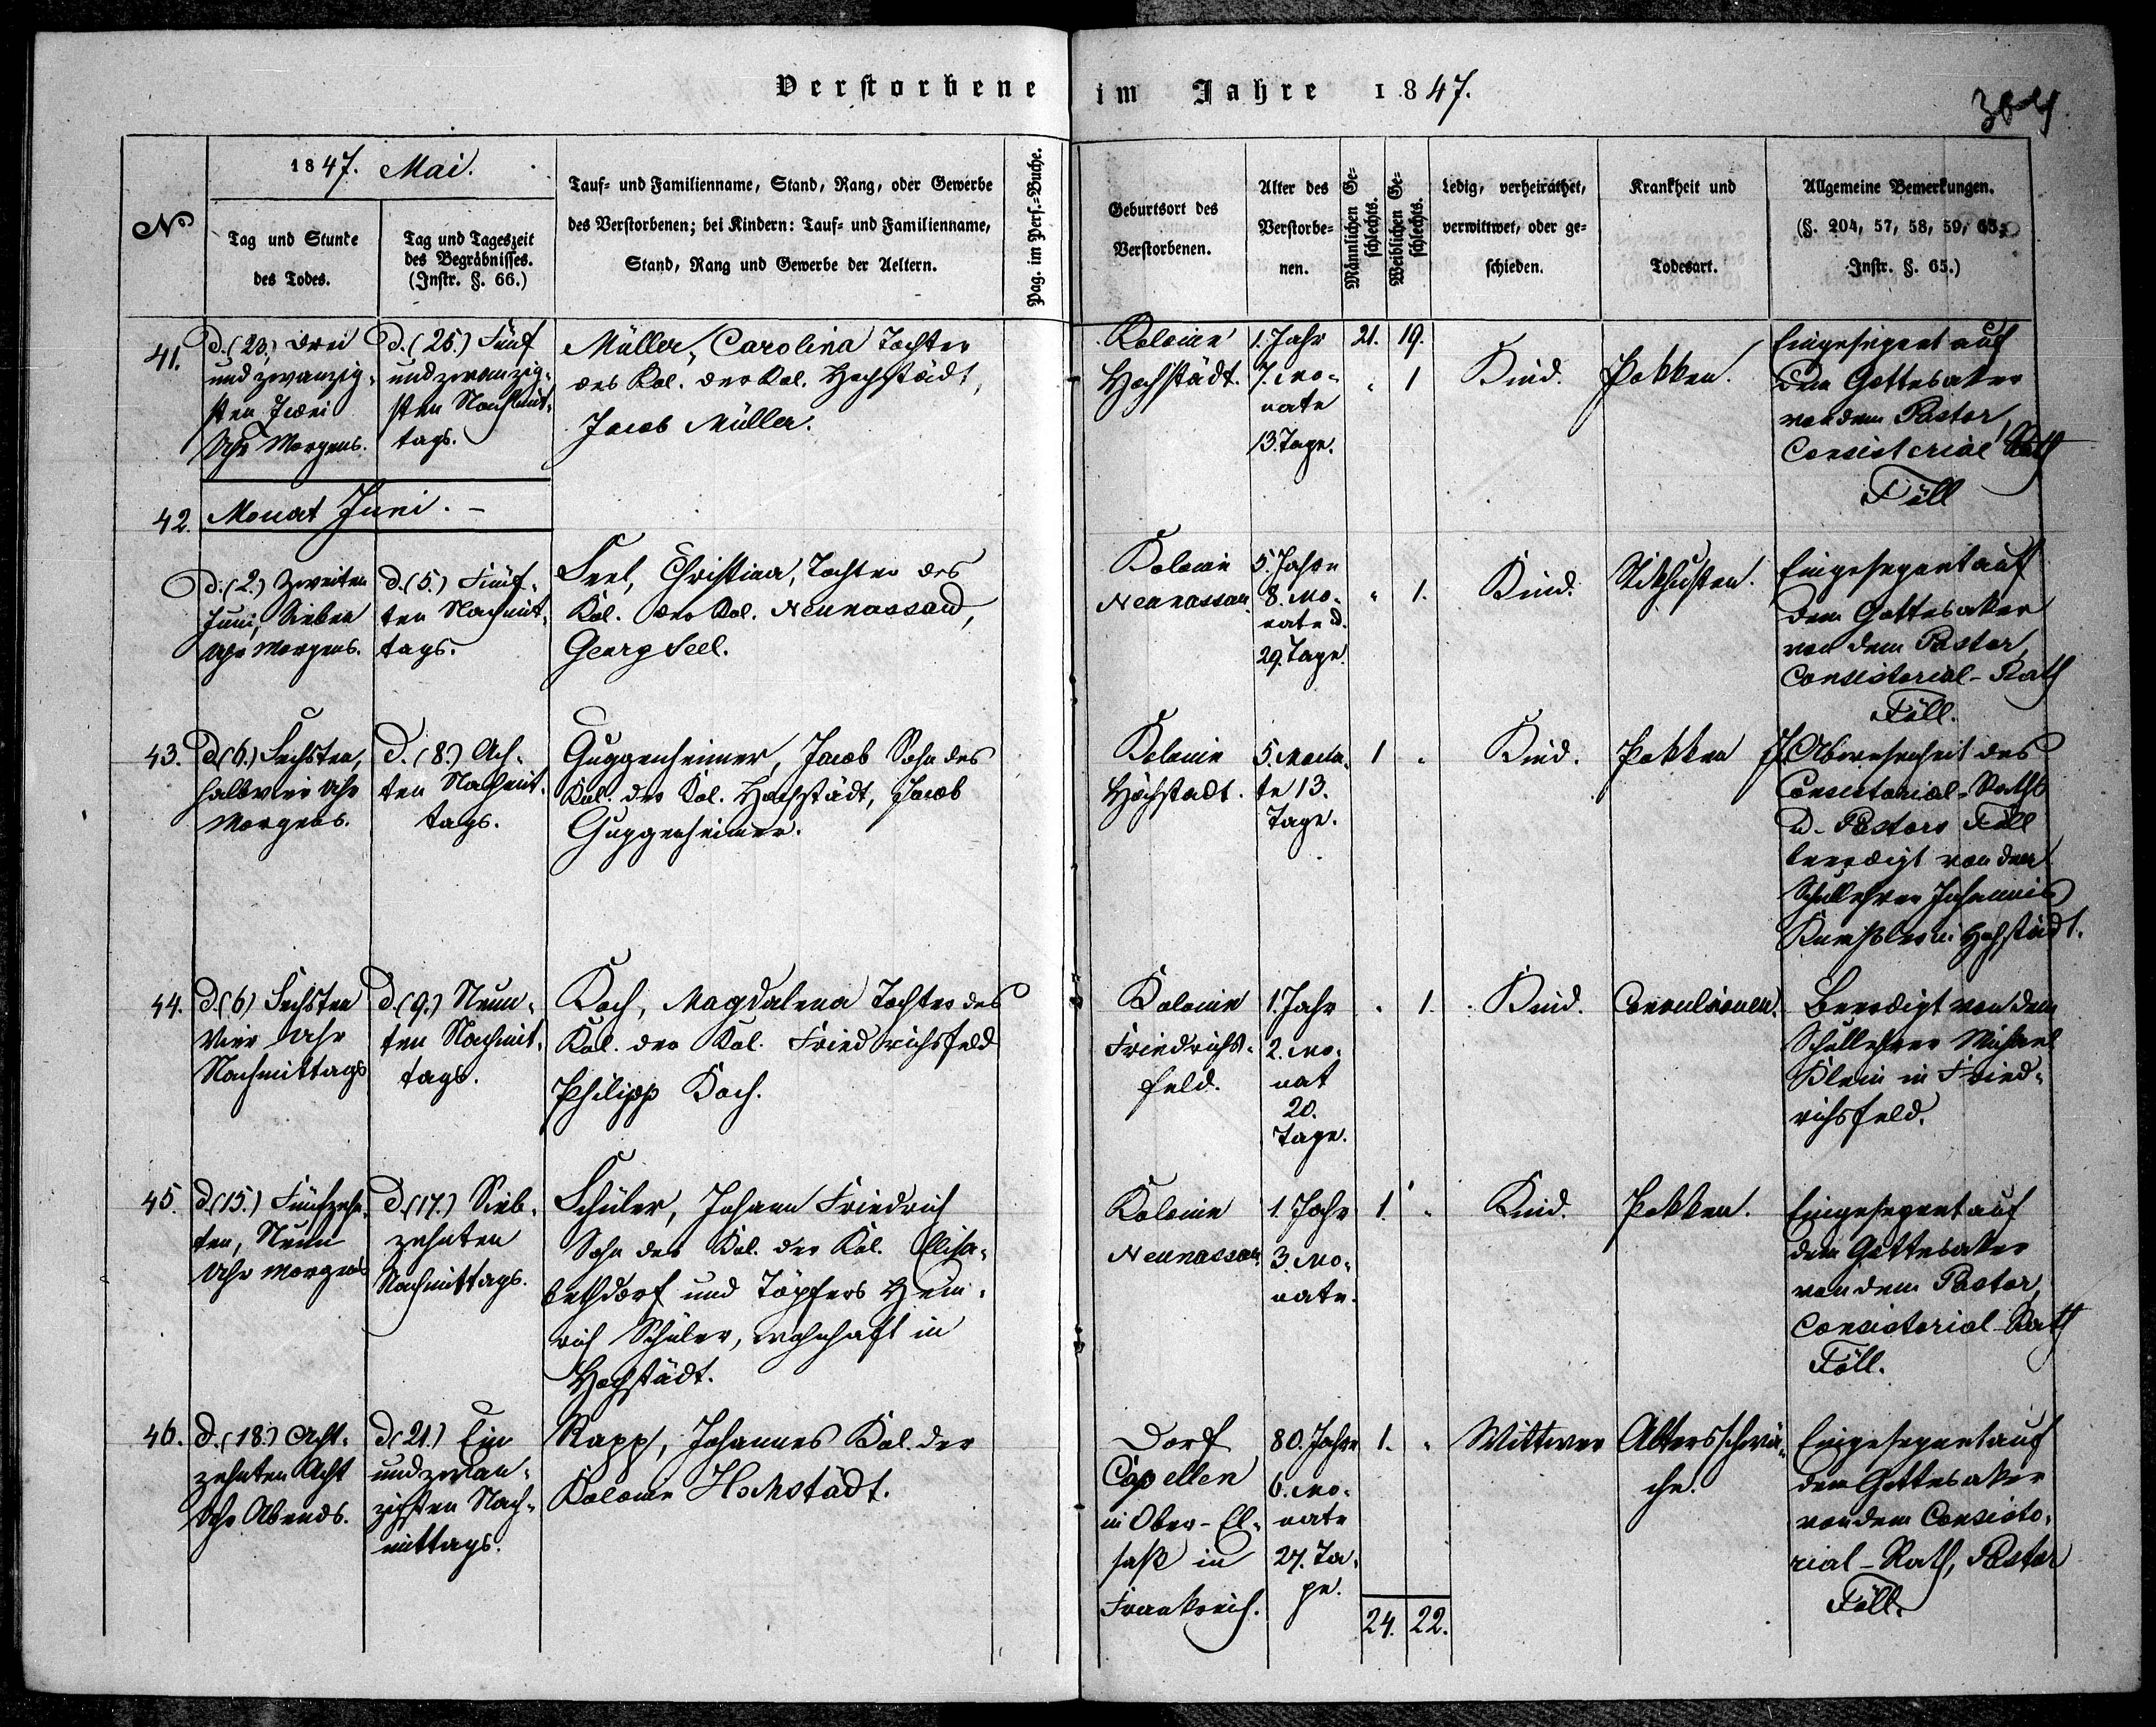 Verstorbene im Jahre 1847.
1847. Mai.
No
Tag und Stunde
des Todes.
Tag und Tageszeit
des Begräbnisses.
(Instr. §. 66.)
Tauf- und Familienname, Stand, Rang, oder Gewerbe
des Verstorbenen; bei Kindern: Tauf- und Familienname,
Stand, Rang und Gewerbe der Aeltern.
Pag. im Pers.-Buche.
Geburtsort des
Verstorbenen.
Alter des
Verstorbe-
nen.
Männlichen Ge-
schlechts.
Weiblichen Ge-
schlechts.
Ledig, verheirathet,
verwittwet, oder ge-
schieden.
Krankheit und
Todesart.
Allgemeine Bemerkungen.
(§. 204, 57, 58, 59, 65,
Instr. §. 65.)
41.
d. (23.) Drei
und zwanzig-
sten Zwei
Uhr Morgens.
d. (25.) Fünf
und zwanzig-
sten Nachmit-
tags.
Müller, Carolina Tochter
des Kol. der Kol. Hochstädt,
Jacob Müller.
Kolonie
Hochstädt.
1. Jahr
7. Mo-
nate
13. Tage.
21. 19.
" 1
Kind.
Pokken.
Eingesegent auf
dem Gottesaker
von dem Pastor
Consistorial Rath
Föll
42.
Monat Juni. -
d. (2.) Zweiten
Juni, Sieben
Uhr Morgens.
d. (5.) Fünf-
ten Nachmit-
tags.
Seel, Christina, Tochter des
Kol. der Kol. Neunassau,
Georg Seel.
Kolonie
Neunassau.
5. Jahre
8. Mo-
nate u.
29. Tage.
" 1.
Kind.
Stikhusten.
Eingesegent auf
dem Gottesaker
von dem Pastor,
Consistorial-Rath
Föll.
43.
d. (6.) Sechsten,
halb vier Uhr
Morgens.
d. (8.) Ach-
ten Nachmit-
tags.
Guggenheimer, Jacob Sohn des
Kol. der Kol. Hochstädt, Jacob
Guggenheimer.
Kolonie
Hochstadt.
5. Mona-
te 13.
Tage.
1 "
Kind.
Pokken
In Abwesenheit des
Consistorial-Raths
u. Pastors Föll
beerdigt von dem
Schullehrer Johannes
in Hochstädt.
44.
d. (6) Sechsten
Vier Uhr
Nachmittags
d. (9.) Neun-
ten Nachmit-
tags.
Koch, Magdalena Tochter des
Kol. der Kol. Friedrichsfeld
Philipp Koch.
Kolonie
Friedrichs-
feld.
1. Jahr
2. Mo-
nat
20.
Tage.
" 1.
Kind.
Convulsionen.
Beerdigt von dem
Schullehrer Michael
Klein in Fried-
richsfeld.
45.
d. (15.) Fünfzehn-
ten, Neun
Uhr Morgens
d. (17.) Sieb-
zehnten
Nachmittags.
Schüler, Johann Friedrich
Sohn des Kol. der Kol. Elisa-
bethdorf und Töpfers Hein-
rich Schüler, wohnhaft in
Hochstädt.
Kolonie
Neunassau.
1. Jahr
3. Mo-
nate.
1. "
Kind.
Pokken.
Eingesegent auf
dem Gottesaker
von dem Pastor,
Consistorial-Rath
Föll.
46.
d. (18.) Acht-
zehnten Acht
Uhr Abends.
d. (21.) Ein
und zwan-
zigsten Nach-
mittags.
Rapp, Johannes Kol. der
Kolonie Hochstädt.
Dorf
Capellen
in Ober-El-
saß in
Frankreich.
80. Jahre
6. Mo-
nate
27. Ta-
ge.
1. "
Wittwer
Altersschwä-
che.
Eingesegent auf
dem Gottesaker
von dem Consisto-
rial-Rath, Pastor
Föll.
24. 22.